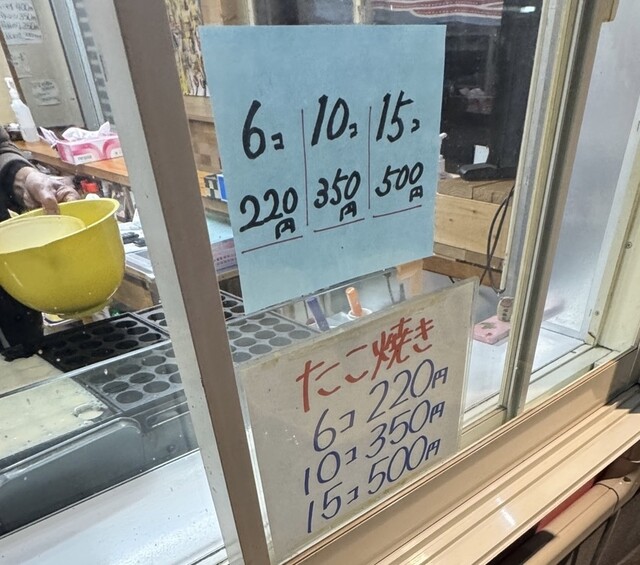 6コ 10コ 15コ
220円 350円 500円
たこ焼き
6コ220円
10コ350円
15コ500円